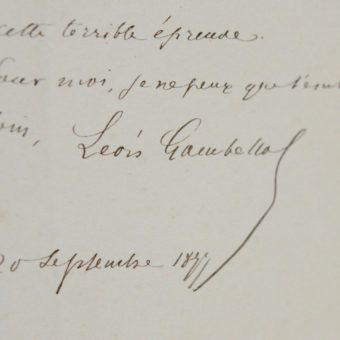 cette terrible épreude.
Pour moi, je ne peux que t'écri
loin, Leóis Gambetta
20 Septembre 1877